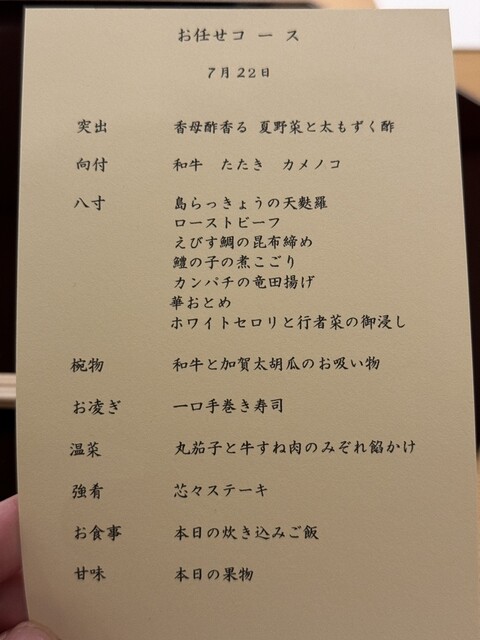 お任せコース
7月22日
突出 香母酢香る 夏野菜と太もずく酢
向付 和牛 たたき カメノコ
八寸 島らっきょうの天麩羅
ローストビーフ
えびす鯛の昆布締め
鱧の子の煮こごり
カンパチの竜田揚げ
華おとめ
ホワイトセロリと行者菜の御浸し
椀物 和牛と加賀太胡瓜のお吸い物
お凌ぎ 一口手巻き寿司
温菜 丸茄子と牛すね肉のみぞれ餡かけ
強肴 芯々ステーキ
お食事 本日の炊き込みご飯
甘味 本日の果物